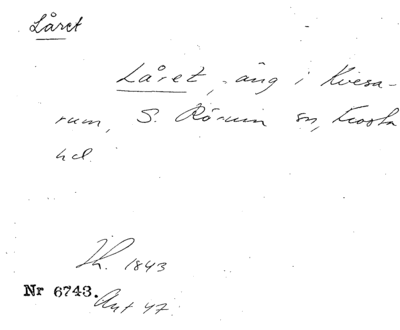 Låret
Låret, äng i Kvesa-
rum, S. Rörum sn, Frosta
hd.
Th. 1843
Nr 6743.
Ant 47